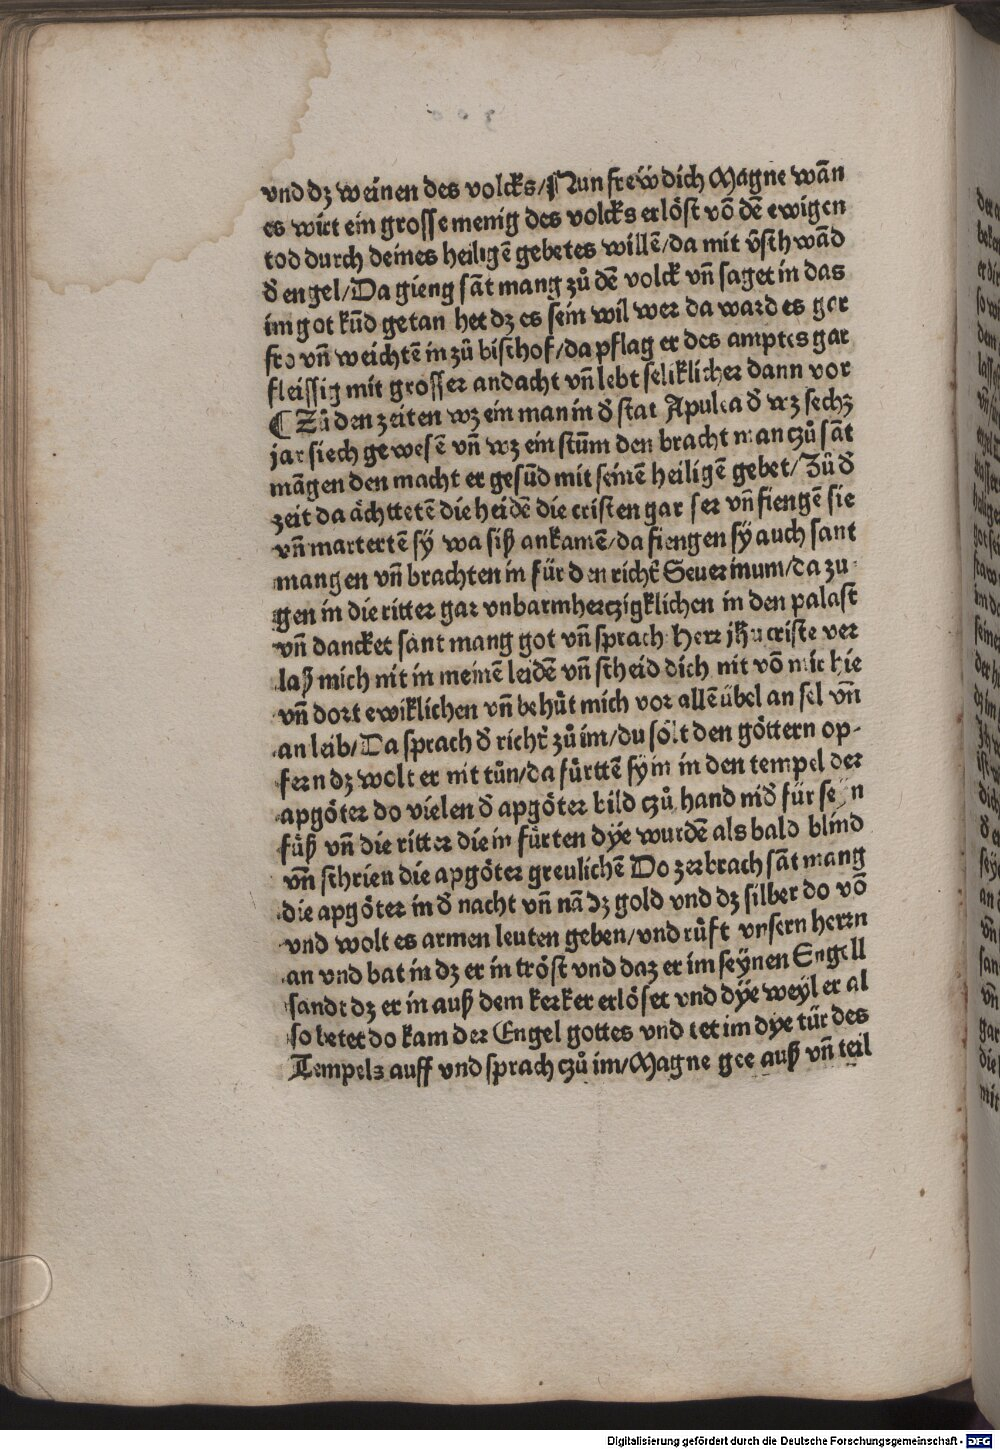 vnd dz weinen des volcks/Nun freẅ dich Magne wān
es wirt ein grosse menig des volcks erlöst vō dē ewigen
tod durch deines heiligē gebetes willē/da mit v̄sthwād
đ engel/Da gieng sāt mang zů dē volck vn̄ saget in das
im got kūd getan het dz es sein wil wer da ward es gar
fro vn̄ weichtē in zů bisthof/da pflag er des amptes gar
fleissig mit grosser andacht vn̄ lebt seliklicher dann vor
¶ Zů den zeiten wz ein man in đ stat Apulea đ wz sechz
jar siech gewesē vn̄ wz ein stūm den bracht man czů sāt
māgen den macht er gesūd mit seinē heiligē gebet/Zů đ
zeit da ächttetē die heidē die cristen gar ser vn̄ fiengē sie
vn̄ martertē sÿ wa siß ankamē/da fiengen sÿ auch sant
mangen vn̄ brachten in für den richt̄ Seuerinum/da zu-
gen in die ritter gar vnbarmherczigklichen in den palast
vn̄ dancket sant mang got vn̄ sprach Herr jhu criste ver
laß mich nit in meinē leidē vn̄ scheid dich nit vō mir hie
vn̄ dort ewiklichen vn̄ behüt mich vor allē übel an sel vn̄
an leib/Da sprach đ richt̄ zů im/du solt den göttern op-
fern dz wolt er nit tůn/da fůrttē sÿ in in den tempel der
apgöter do vielen đ apgöter bild czů hand niđ für seyn
füß vn̄ die ritter die in fůrten dÿe wurdē als bald blind
vn̄ schrien die apgöter greulichē Do zerbrach sāt mang
die apgöter in đ nacht vn̄ nā dz gold vnd dz silber do vō
vnd wolt es armen leuten geben/vnd růft vnsern herrn
an vnd bat in dz er in tröst vnd daz er im seÿnen Engell
sandt dz er in auß dem kerker erlöset vnd dÿe weyl er al
so betet do kam der Engel gottes vnd tet im dye tür des
Tempels auff vnd sprach czů im/Magne gee auß vn̄ teil
Digitalisierung gefördert durch die Deutsche Forschungsgemeinschaft - DFG